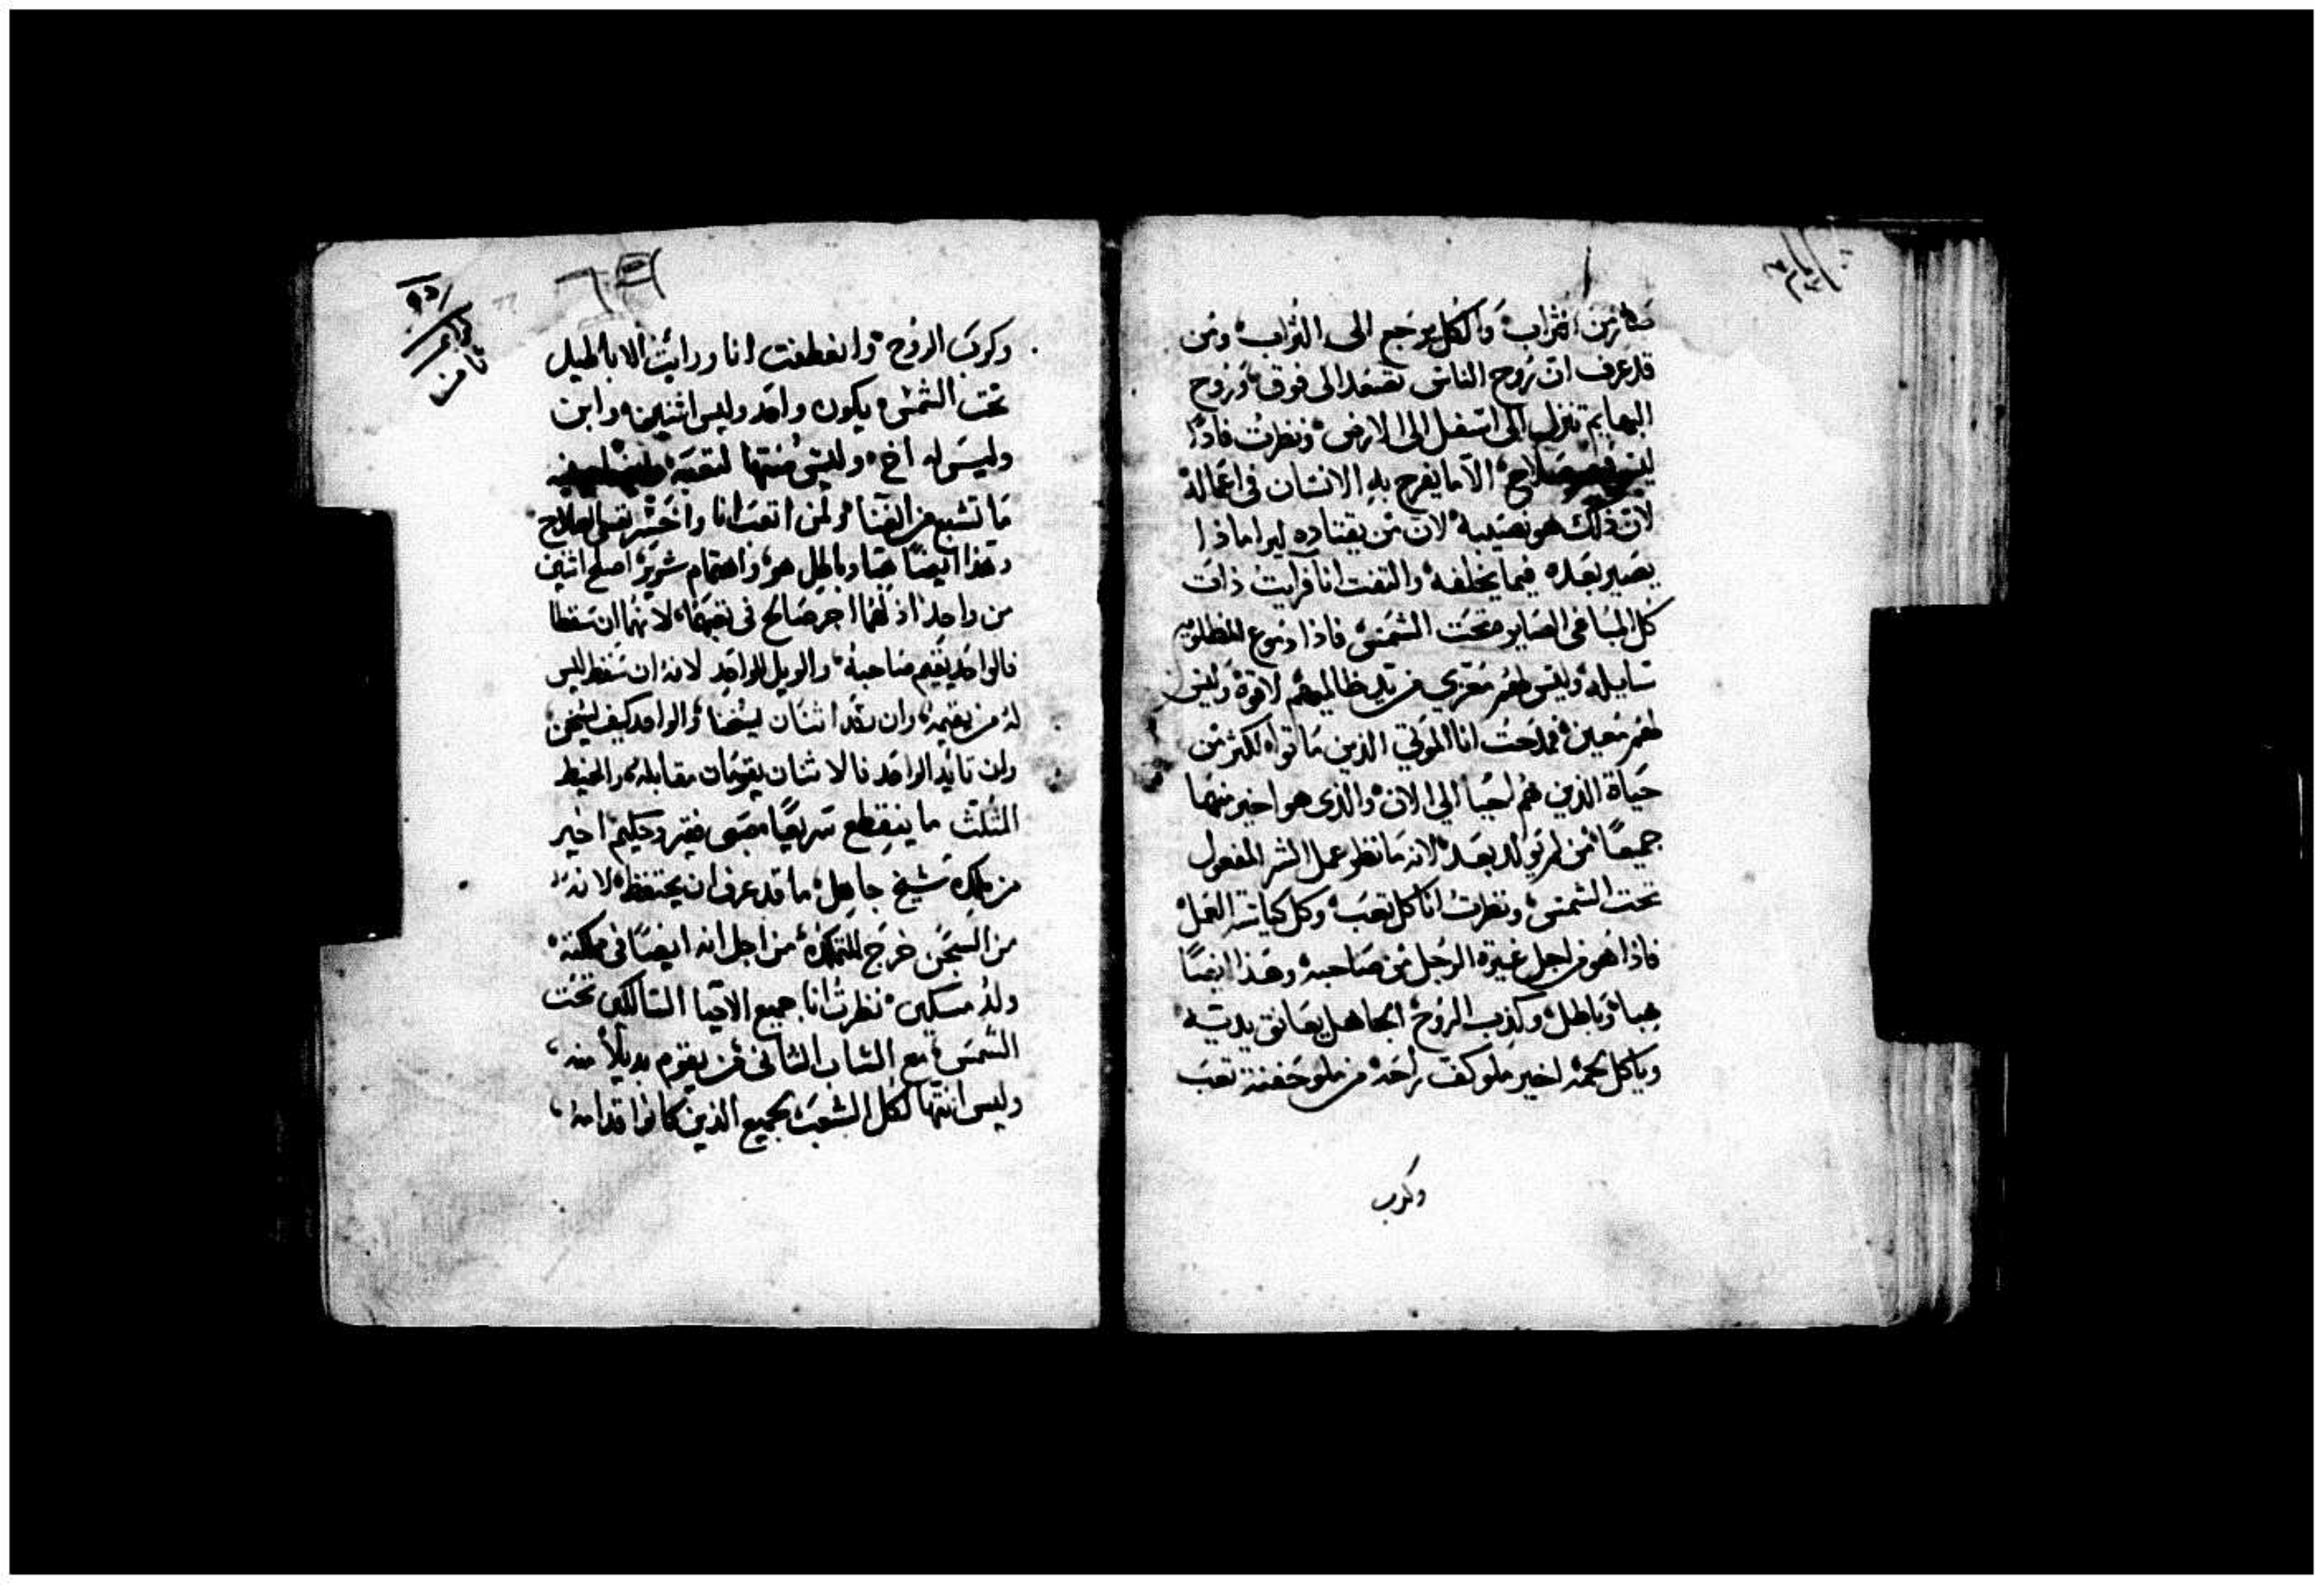 صائر من التراب والكل يرجع الى التراب ومن
قد عرف ان روح الناس تصعد الى فوق وروح
البهايم تنزل الى اسفل الى الارض ونظرت فاذا
ليس صلاح الا ما يفرح به الانسان في اعماله
لان ذلك هو نصيبه لان من يقتاده ليرا ماذا
يصير بعده فيما يخلفه والتفت انا فرايت ذات
كل المساعي الصايره تحت الشمس فاذا دموع المظلومين
سايله وليس لهم معزي من يد ظالميهم لا قوة وليس
لهم معين فمدحت انا الموتي الذين ماتوا اكثر من
حياة الذين هم احيا الي الان والذى هو اخير منهما
جميعا من لم يولد بعد لانه ما نظر عمل الشر المفعول
تحت الشمس ونظرت انا كل تعب وكل كياسة العمل
فاذا هو من اجل غيرة الرجل من صاحبه وهذا ايضا
هبا وباطل وكذب الروح الجاهل يعانق يديه
وياكل لحمه اخير ملو كف راحه من ملو حفنة تعب
وكرب
وكرب الروح وانعطفت انا ورايت الاباطيل
تحت الشمس يكون واحد وليس اثنين وابن
وليس له اخ وليس منتها لتعبه
ما تشبع من الغنا ولمن اتعب انا واخسر نفسي الصلاح
وهذا ايضا هبا وباطل هو واهتمام شرير اصلح اثنين
من واحد اذ لهما اجر صالح في تعبهما لانهما ان سقطا
فالواحد يقيم صاحبه والويل للواحد لانه ان سقط ليس
له من يقيمه وان رقد اثنان يسخنا والواحد كيف يسخن
وان تايد الواحد فالاثنان يقومان مقابله والخيط
المثلث ما ينقطع سريعا صبي فقير وحكيم اخير
من ملك شيخ جاهل ما قد عرف ان يحتفظ لانه
من السجن خرج للتملك من اجل انه ايضا في ملكه
ولد مسكين نظرت انا جميع الاحيا السالكين تحت
الشمس مع الشاب الثاني من يقوم بديلا منه
وليس انتها لكل الشعب لجميع الذين كانوا قدامه